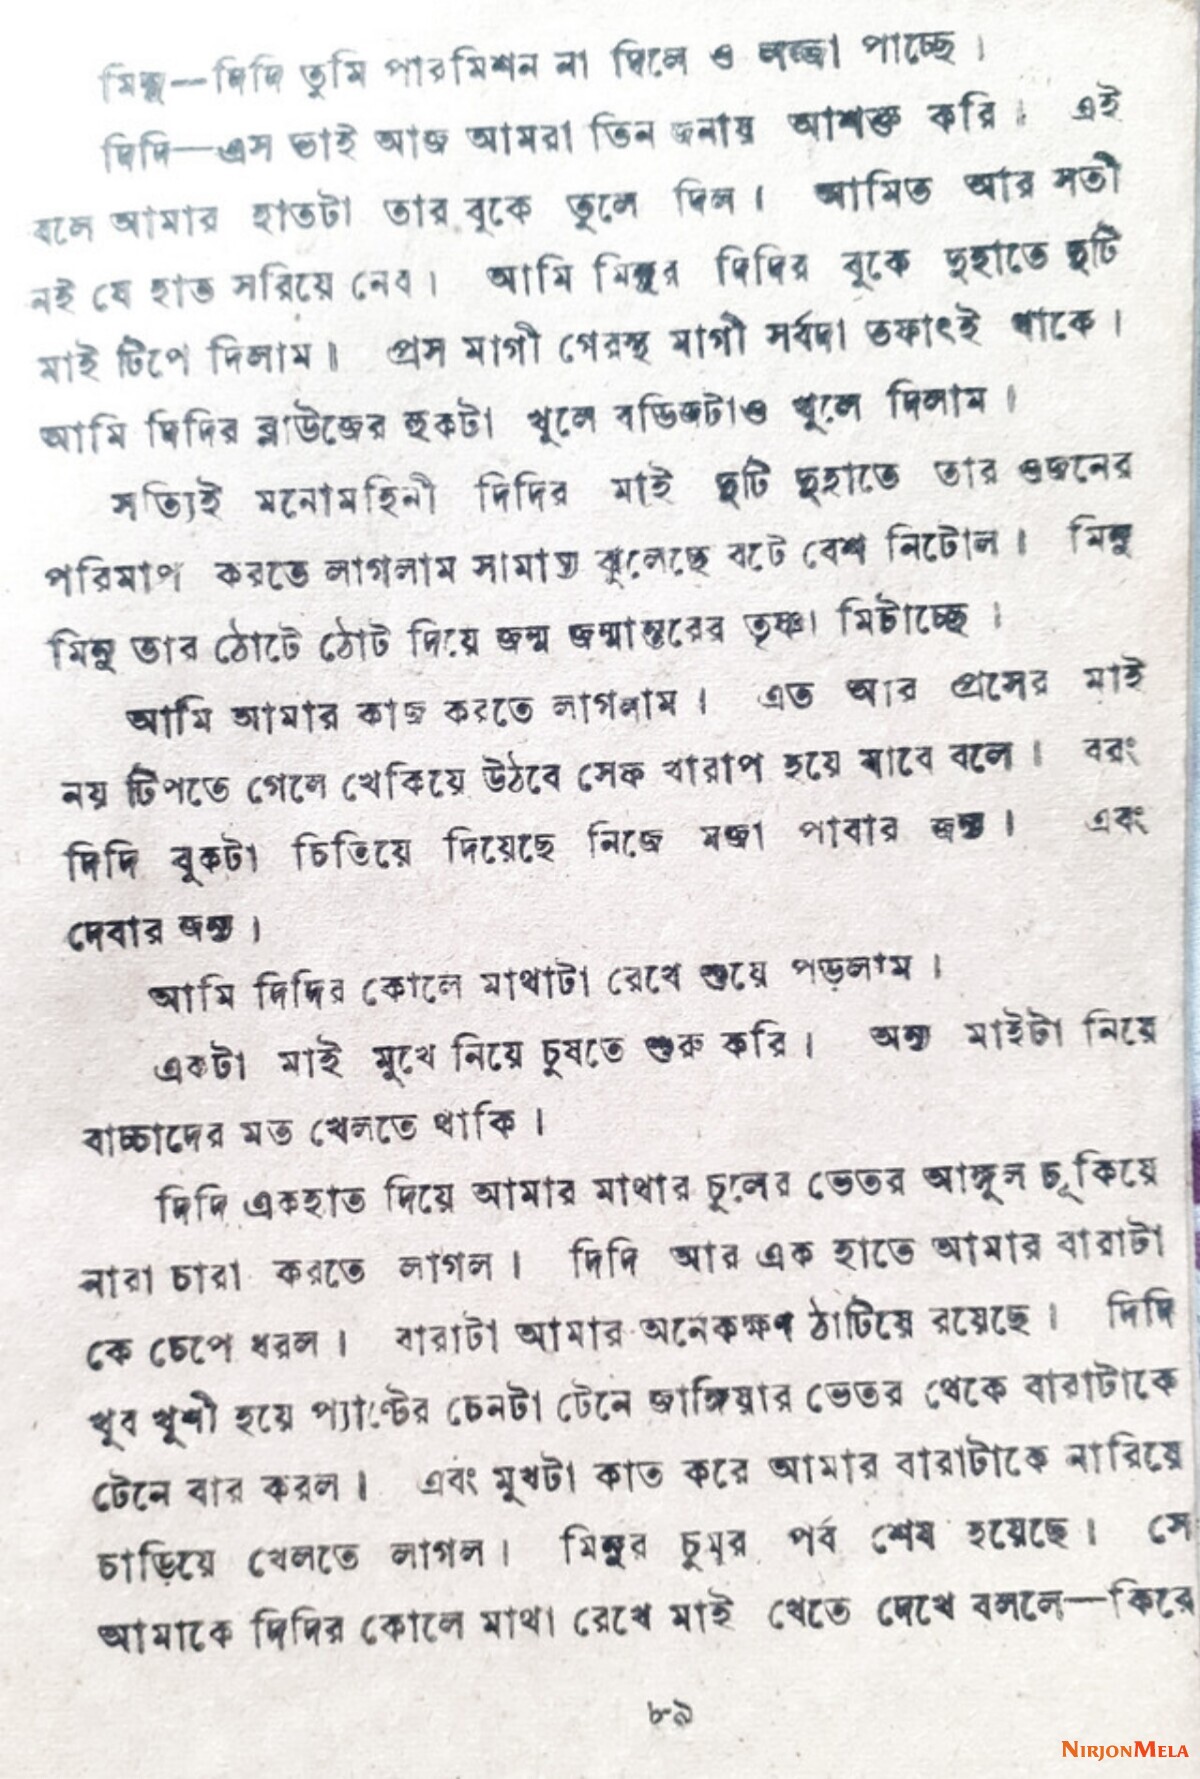 মিনু—দিদি তুমি পারমিশন না দিলে ও লজ্জা পাচ্ছে।
দিদি—এস ভাই আজ আমরা তিন জনায় আশক্ত করি। এই
বলে আমার হাতটা তার বুকে তুলে দিল। আমিত আর সতী
নই যে হাত সরিয়ে নেব। আমি মিনুর দিদির বুকে দুহাতে দুটি
মাই টিপে দিলাম। প্রস মাগী গেরস্থ মাগী সর্বদা তফাৎই থাকে।
আমি দিদির ব্লাউজের হুকটা খুলে বডিজটাও খুলে দিলাম।
সত্যিই মনোমহিনী দিদির মাই দুটি দুহাতে তার ওজনের
পরিমাপ করতে লাগলাম সামান্য ঝুলেছে বটে বেশ নিটোল। মিনু
মিনু তার ঠোটে ঠোট দিয়ে জন্ম জন্মান্তরের তৃষ্ণা মিটাচ্ছে।
আমি আমার কাজ করতে লাগলাম। এত আর প্রসের মাই
নয় টিপতে গেলে খেকিয়ে উঠবে সেফ খারাপ হয়ে যাবে বলে। বরং
দিদি বুকটা চিতিয়ে দিয়েছে নিজে মজা পাবার জন্য। এবং
দেবার জন্য।
আমি দিদির কোলে মাথাটা রেখে শুয়ে পড়লাম।
একটা মাই মুখে নিয়ে চুষতে শুরু করি। অন্য মাইটা নিয়ে
বাচ্চাদের মত খেলতে থাকি।
দিদি একহাত দিয়ে আমার মাথার চুলের ভেতর আঙ্গুল ঢূকিয়ে
নারা চারা করতে লাগল। দিদি আর এক হাতে আমার বারাটা
কে চেপে ধরল। বারাটা আমার অনেকক্ষণ ঠাটিয়ে রয়েছে। দিদি
খুব খুশী হয়ে প্যাণ্টের চেনটা টেনে জাঙ্গিয়ার ভেতর থেকে বারাটাকে
টেনে বার করল। এবং মুখটা কাত করে আমার বারাটাকে নারিয়ে
চাড়িয়ে খেলতে লাগল। মিনুর চুমুর পর্ব শেষ হয়েছে। সে
আমাকে দিদির কোলে মাথা রেখে মাই খেতে দেখে বললে—কিরে
৮৯
NIRJONMELA